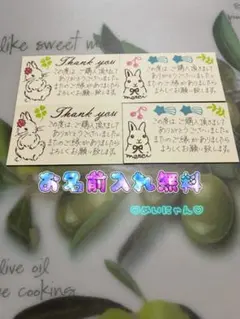 like sweet mem
Thank you
この度は、ご購入頂きまして
ありがとうございました。
またのご縁がありましたら
よろしくお願い致します。
この度は、ご購入頂きまして
ありがとうございました。
またのご縁がありましたら
よろしくお願い致します。
manor
Thank you
この度は、ご購入頂きまして
ありがとうございました。
またのご縁がありましたら
よろしくお願い致します。
この度は、ご購入頂きまして
ありがとうございました。
またのご縁がありましたら
よろしくお願い致します。
manor
お名前入れ無料
♡めいにゃん♡
live oil
he cooking